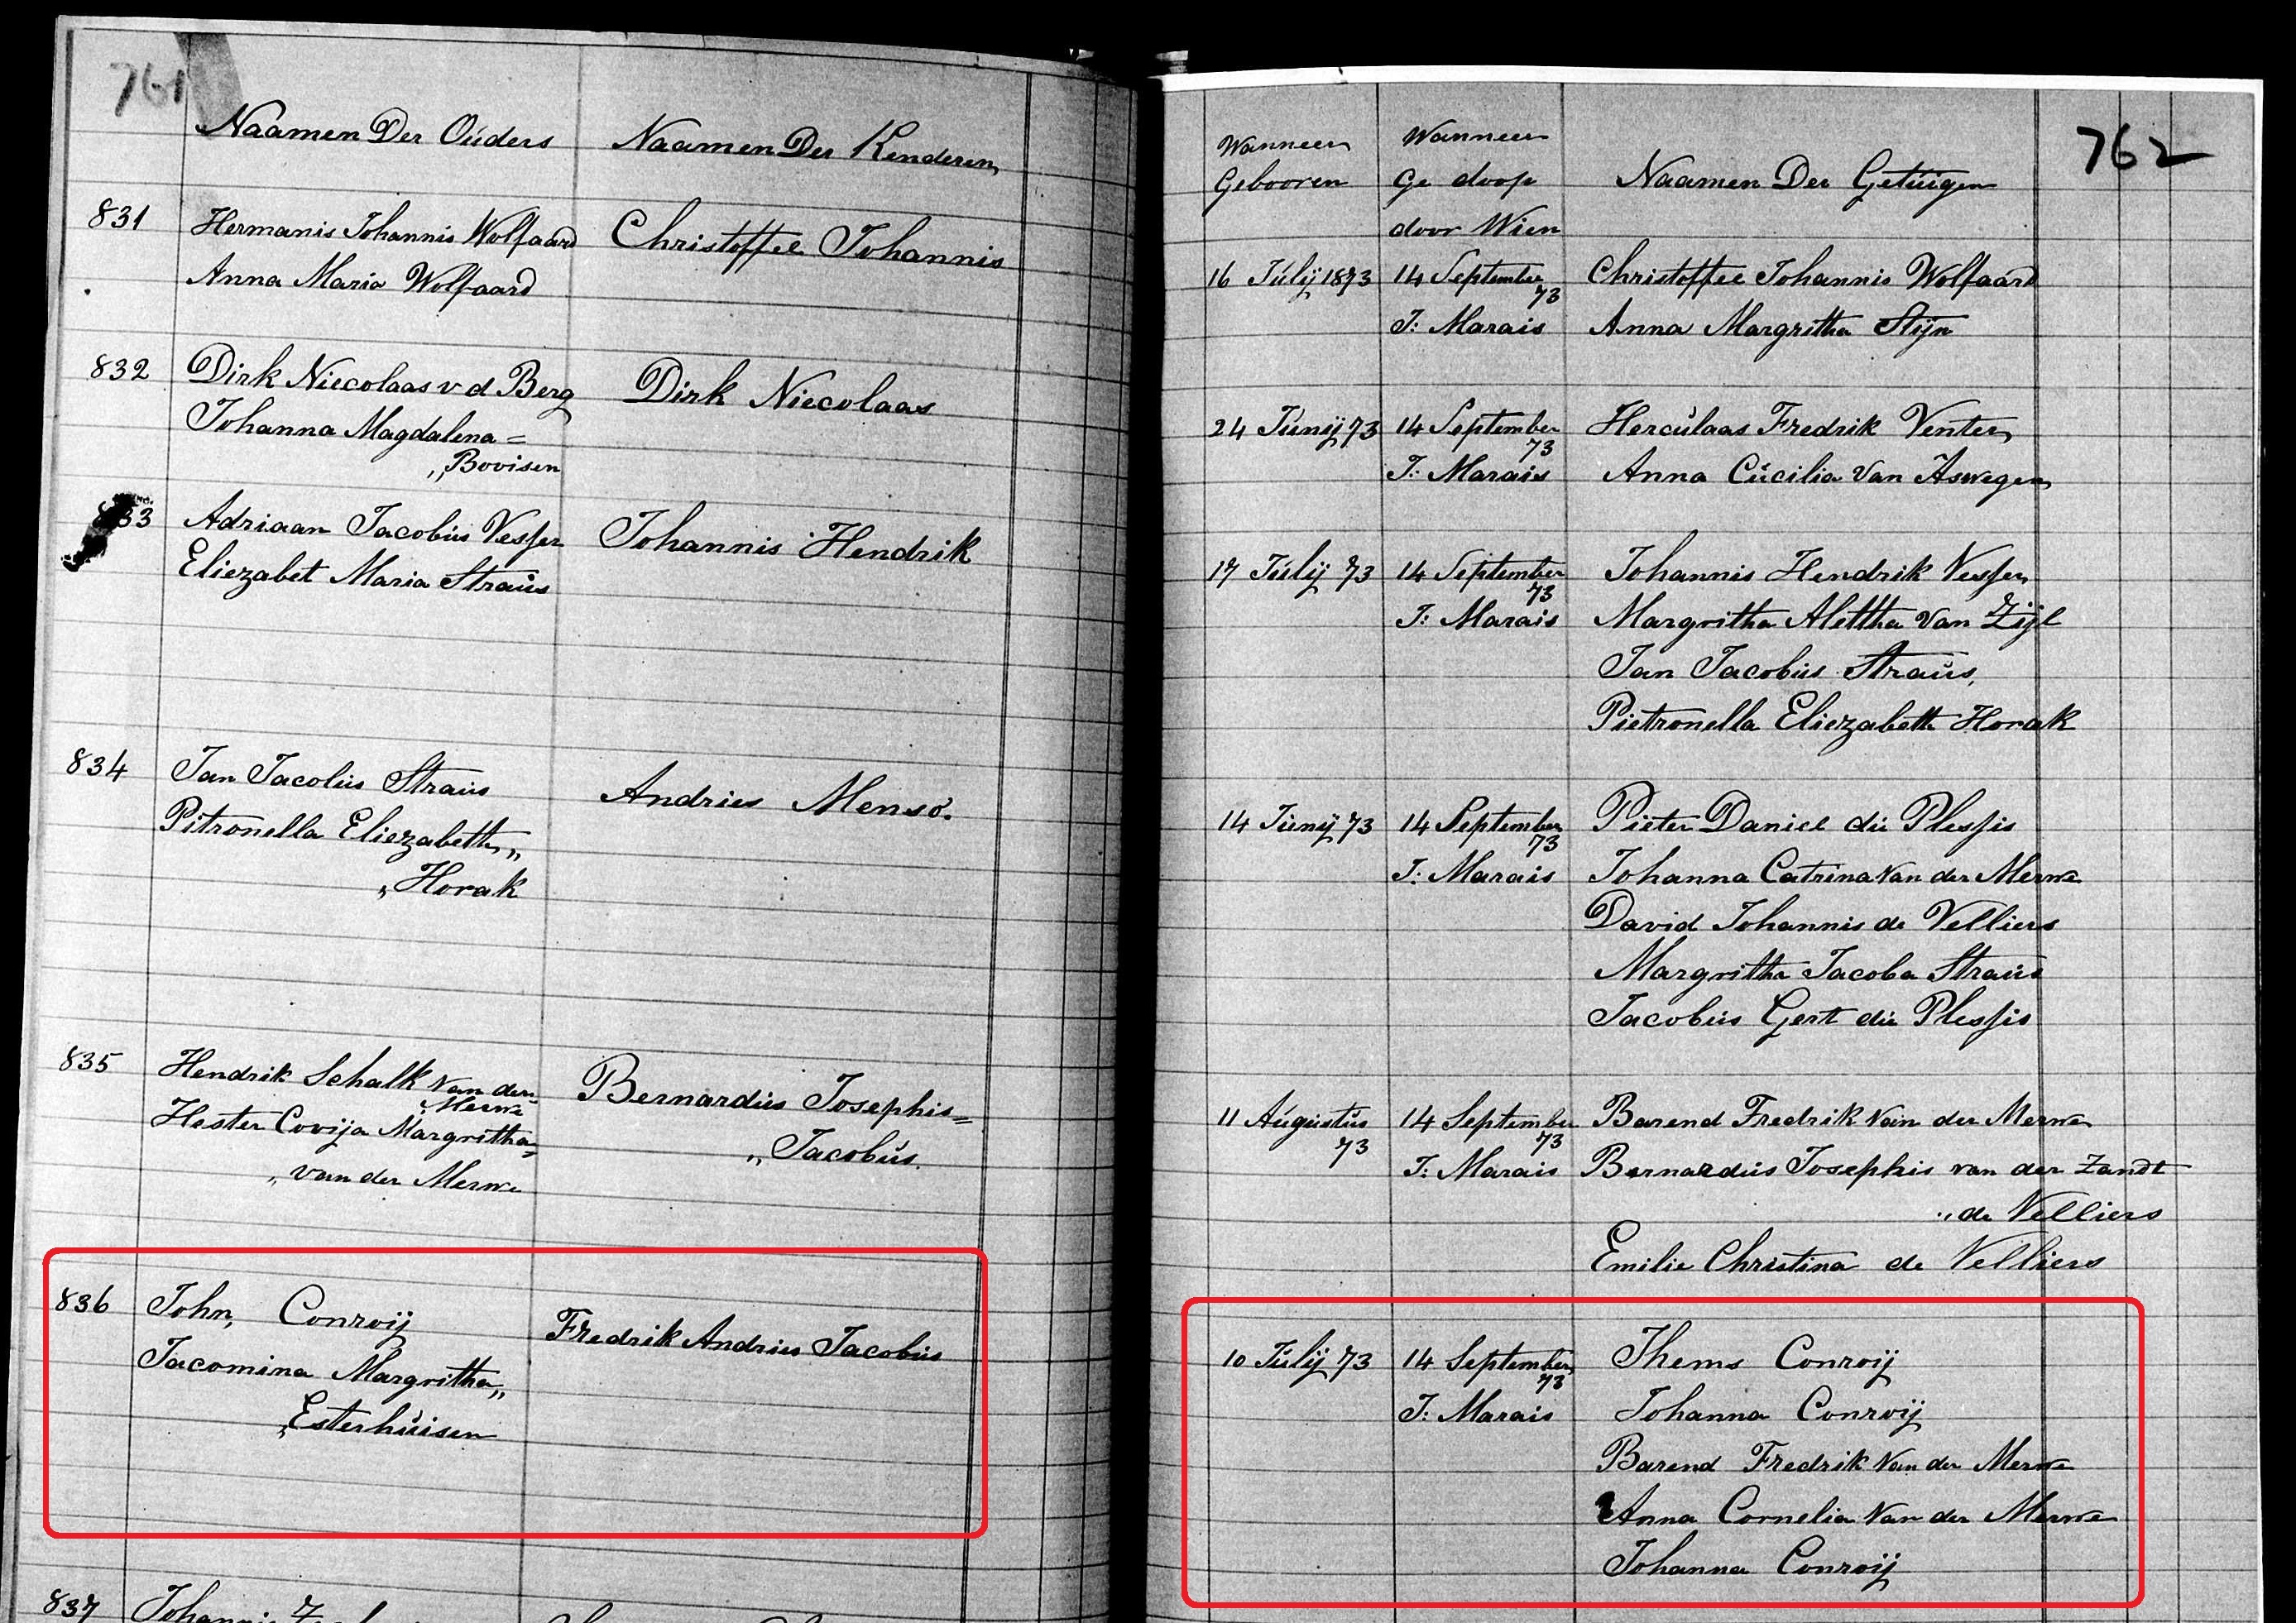 761
Naamen Der Ouders Naamen Der Kenderen
831 Hermanis Johannis Wolfaard Christoffel Johannis
Anna Maria Wolfaard
832 Dirk Niecolaas v d Berg Dirk Niecolaas
Johanna Magdalena =
„ Bovisen
833 Adriaan Jacobus Vesser Johannis Hendrik
Eliezabet Maria Straus
834 Jan Jacobus Straus Andries Menso.
Pitronella Eliezabetth „
„ Horak
835 Hendrik Schalk van der Bernardus Josephis =
Merwe
Hester Covija Margritha = „ Jacobus.
„ van der Merwe
836 John, Conroij Fredrik Andries Jacobus
Jacomina Margritha „
„ Esterhuisen
837 Johannis
762
Wanneer Wanneer
Gebooren Ge doop Naamen Der Getuigen
door Wien
16 Julij 1873 14 September Christoffel Johannis Wolfaard
73
J: Marais Anna Margritha Stijn
24 Junij 73 14 September Herculaas Fredrik Venter
73
J: Marais Anna Cucilia van Aswegen
17 Julij 73 14 September Johannis Hendrik Vesser
73
J: Marais Margritha Alettha van Zijl
Jan Jacobus Straus,
Pietronella Eliezabetth Horak
14 Junij 73 14 September Pieter Daniel du Plessis
73
J: Marais Johanna Catrina van der Merwe
David Johannis de Velliers
Margritha Jacoba Straus
Jacobus Gert du Plessis
11 Augustus 14 September Barend Fredrik van der Merwe
73 73
J: Marais Bernardus Josephis van der Zandt
„ de Velliers
Emilie Christina de Velliers
10 Julij 73 14 September Thems Conroij
73
J: Marais Johanna Conroij
Barend Fredrik van der Merwe
Anna Cornelia van der Merwe
Johanna Conroij